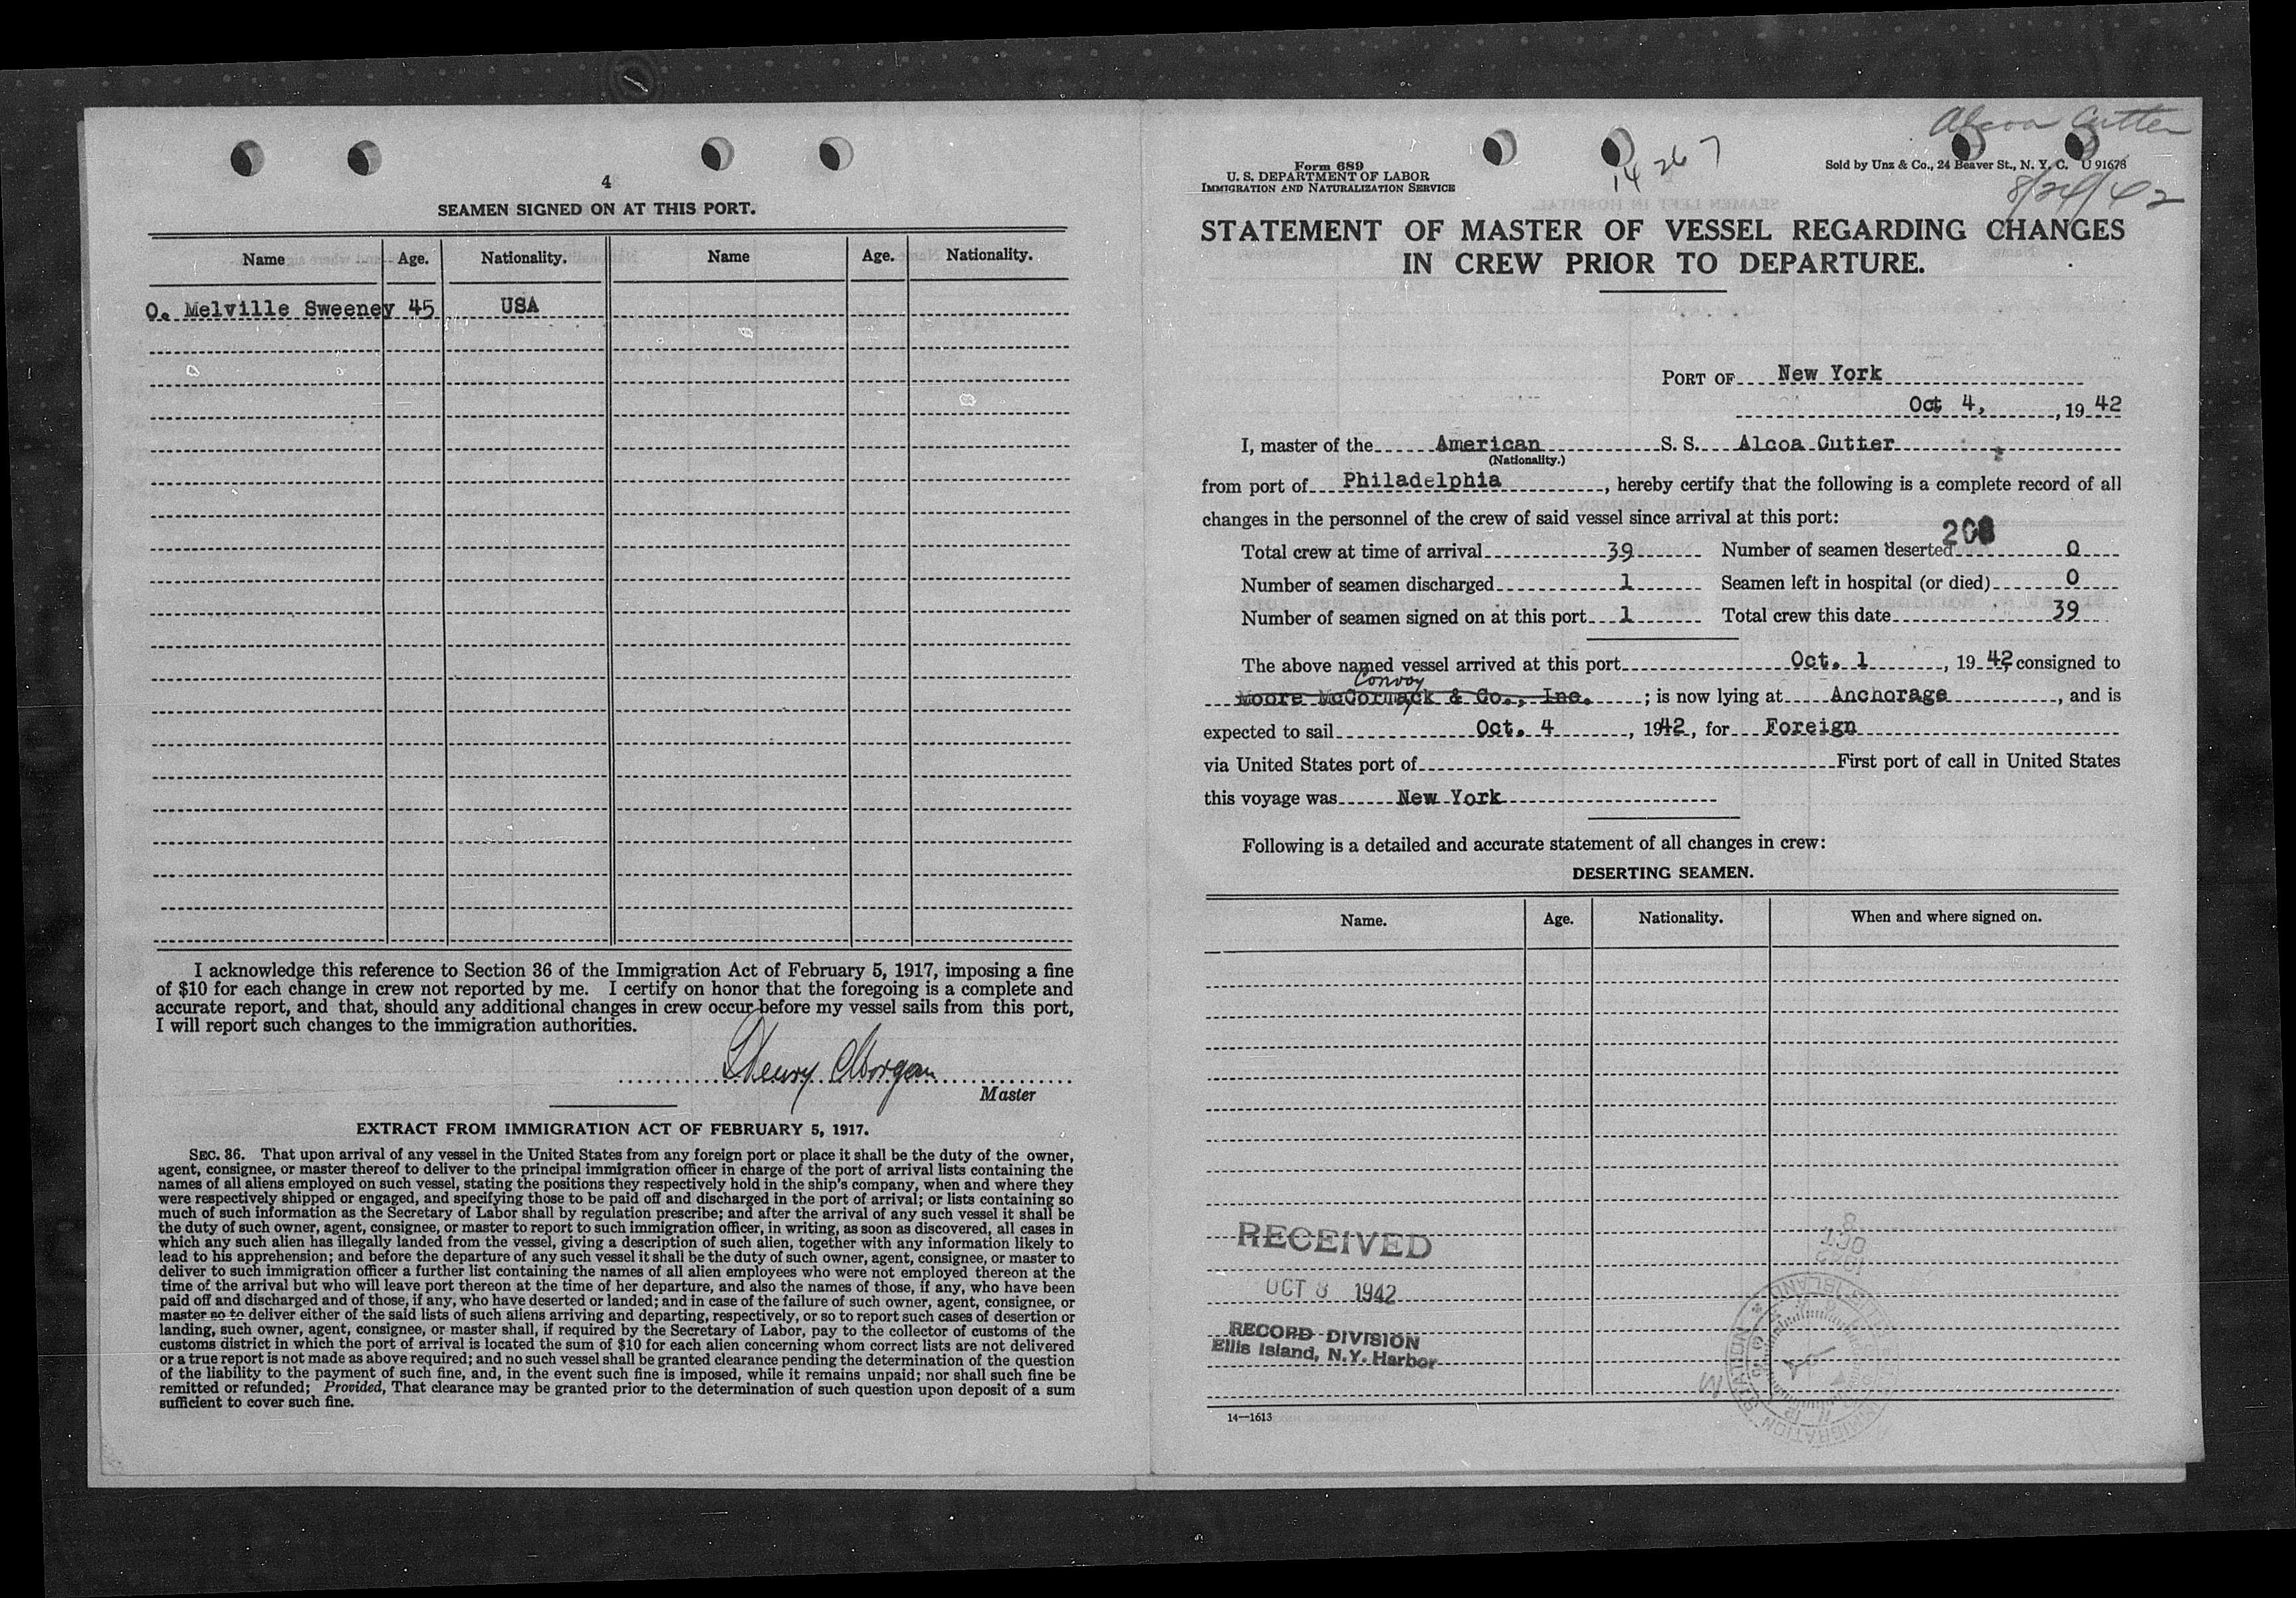 4
SEAMEN SIGNED ON AT THIS PORT.
Name Age. Nationality. Name Age. Nationality.
O. Melville Sweeney 45 USA
I acknowledge this reference to Section 36 of the Immigration Act of February 5, 1917, imposing a fine
of $10 for each change in crew not reported by me. I certify on honor that the foregoing is a complete and
accurate report, and that, should any additional changes in crew occur before my vessel sails from this port,
I will report such changes to the immigration authorities.
Henry Morgan
Master
EXTRACT FROM IMMIGRATION ACT OF FEBRUARY 5, 1917.
SEC. 36. That upon arrival of any vessel in the United States from any foreign port or place it shall be the duty of the owner,
agent, consignee, or master thereof to deliver to the principal immigration officer in charge of the port of arrival lists containing the
names of all aliens employed on such vessel, stating the positions they respectively hold in the ship's company, when and where they
were respectively shipped or engaged, and specifying those to be paid off and discharged in the port of arrival; or lists containing so
much of such information as the Secretary of Labor shall by regulation prescribe; and after the arrival of any such vessel it shall be
the duty of such owner, agent, consignee, or master to report to such immigration officer, in writing, as soon as discovered, all cases in
which any such alien has illegally landed from the vessel, giving a description of such alien, together with any information likely to
lead to his apprehension; and before the departure of any such vessel it shall be the duty of such owner, agent, consignee, or master to
deliver to such immigration officer a further list containing the names of all alien employees who were not employed thereon at the
time of the arrival but who will leave port thereon at the time of her departure, and also the names of those, if any, who have been
paid off and discharged and of those, if any, who have deserted or landed; and in case of the failure of such owner, agent, consignee, or
master so to deliver either of the said lists of such aliens arriving and departing, respectively, or so to report such cases of desertion or
landing, such owner, agent, consignee, or master shall, if required by the Secretary of Labor, pay to the collector of customs of the
customs district in which the port of arrival is located the sum of $10 for each alien concerning whom correct lists are not delivered
or a true report is not made as above required; and no such vessel shall be granted clearance pending the determination of the question
of the liability to the payment of such fine, and, in the event such fine is imposed, while it remains unpaid; nor shall such fine be
remitted or refunded; Provided, That clearance may be granted prior to the determination of such question upon deposit of a sum
sufficient to cover such fine.
Alcoa Cutter
Form 689
U. S. DEPARTMENT OF LABOR
IMMIGRATION AND NATURALIZATION SERVICE
14267
Sold by Unz & Co., 24 Beaver St., N. Y. C. U 91678
8/24/42
STATEMENT OF MASTER OF VESSEL REGARDING CHANGES
IN CREW PRIOR TO DEPARTURE.
PORT OF New York
Oct 4, , 19 42
I, master of the American S. S. Alcoa Cutter
(Nationality.)
from port of Philadelphia , hereby certify that the following is a complete record of all
changes in the personnel of the crew of said vessel since arrival at this port:
208
Total crew at time of arrival 39 Number of seamen deserted 0
Number of seamen discharged 1 Seamen left in hospital (or died) 0
Number of seamen signed on at this port 1 Total crew this date 39
The above named vessel arrived at this port Oct. 1 , 19 42, consigned to
Convoy
Moore McCormack & Co., Inc. ; is now lying at Anchorage , and is
expected to sail Oct. 4 , 1942, for Foreign
via United States port of First port of call in United States
this voyage was New York
Following is a detailed and accurate statement of all changes in crew:
DESERTING SEAMEN.
Name. Age. Nationality. When and where signed on.
RECEIVED
OCT 8 1942
RECORD DIVISION
Ellis Island, N.Y. Harbor
14—1613